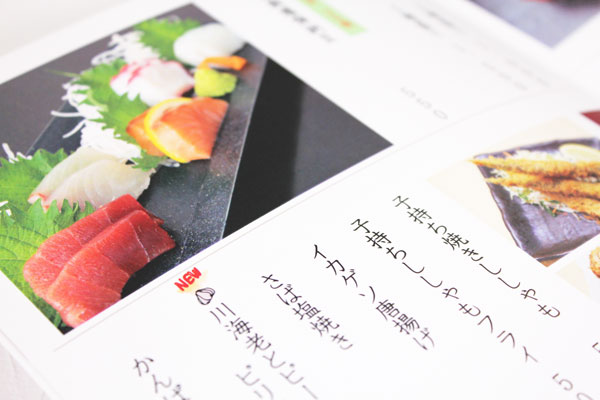 子持ち焼きししゃも
子持ちししゃもフライ
イカゲソ唐揚げ
さば塩焼き
NEW
川海老とピー
ピリ
かんぱ